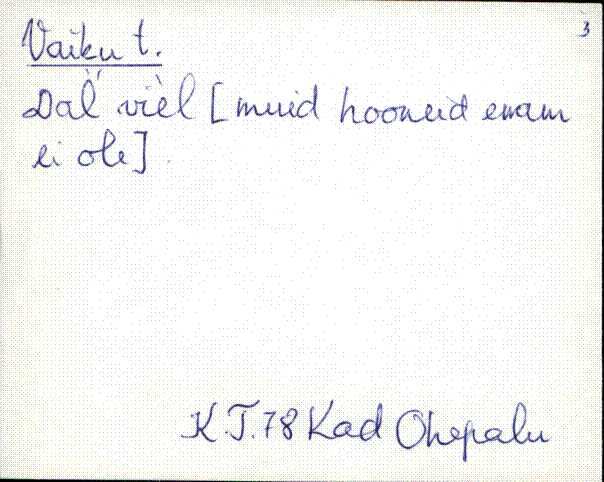 3
Vaiku t.
vièl [muid hooneid enam
ei ole]
K.T.78 Kad Ohepalu